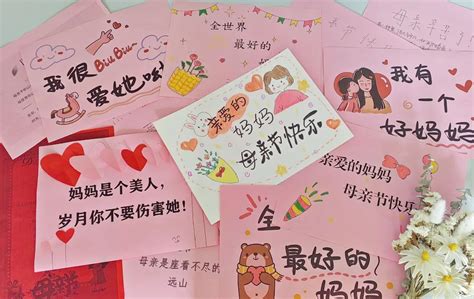 我很
BiuBiu
爱她呦
全世界
最好的
亲爱的
妈妈
母亲节快乐
我有
一个
好妈妈
妈妈是个美人，
岁月你不要伤害她！
亲爱的妈妈
母亲节快乐
全
最好的
妈妈
母亲是座看不尽的
远山